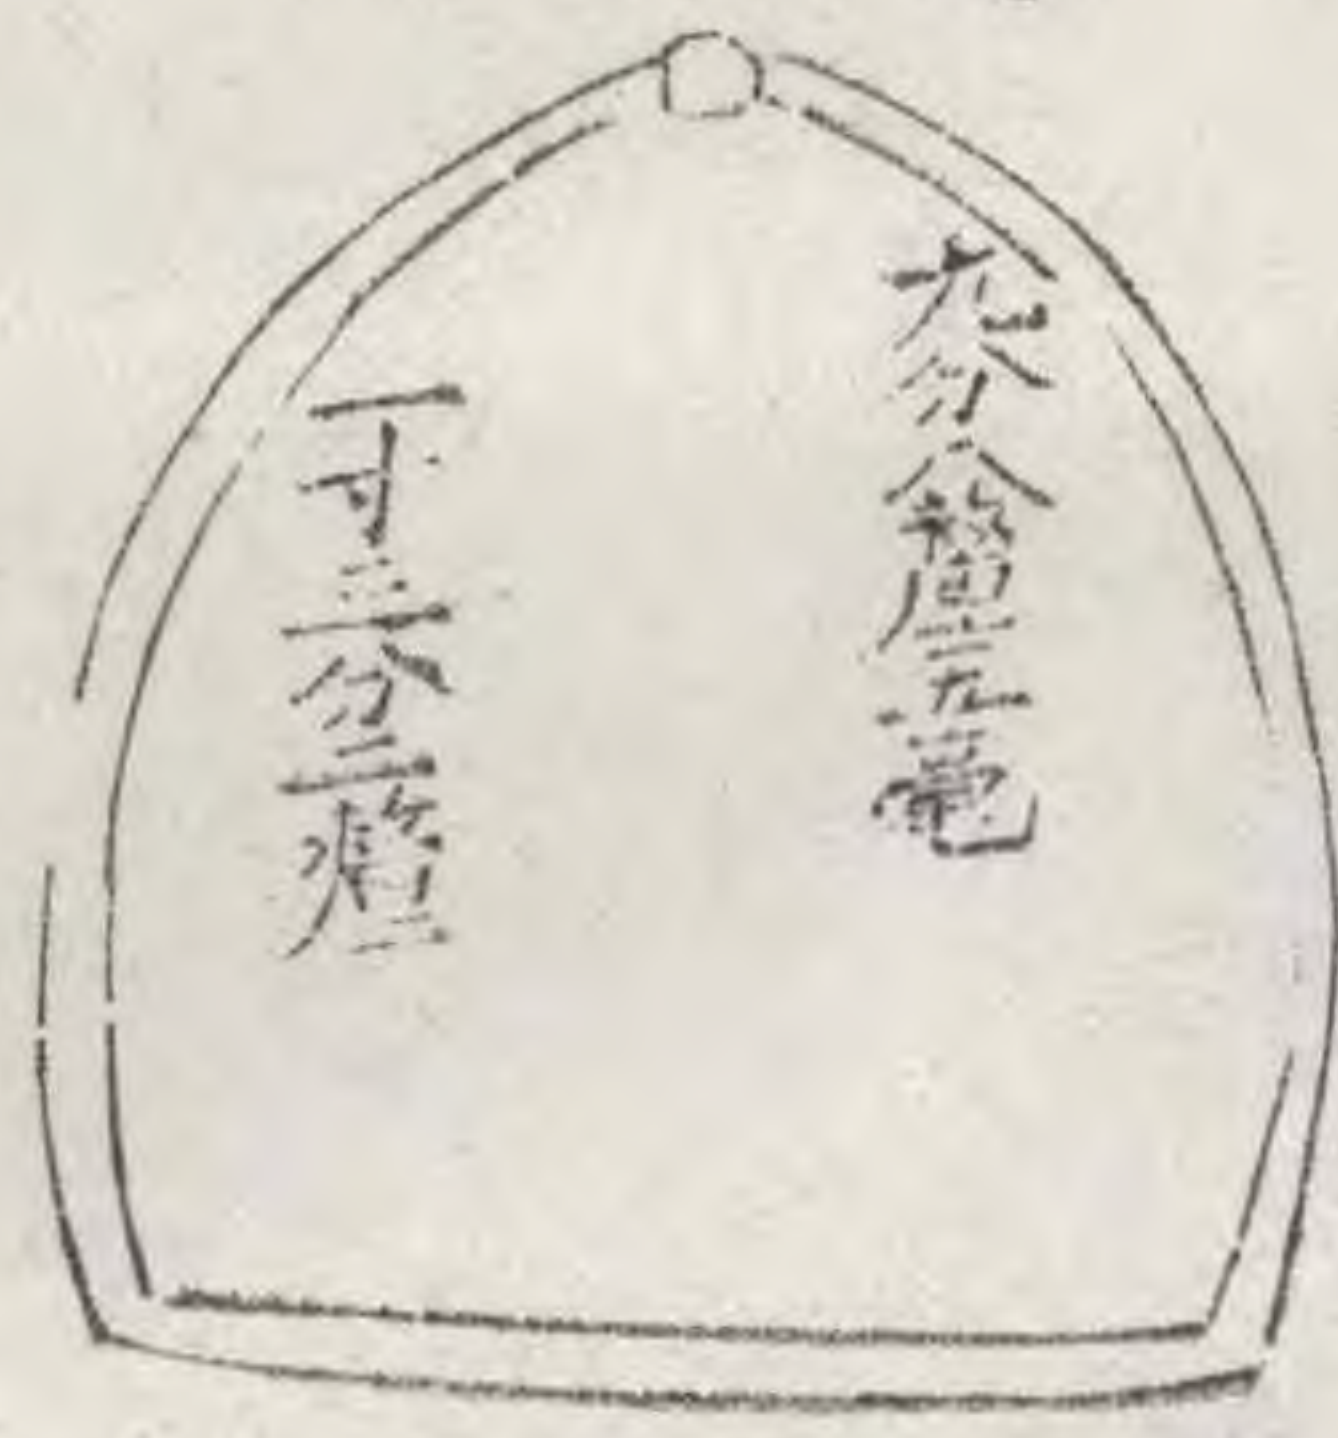 九分八釐九毫
一寸三分二釐